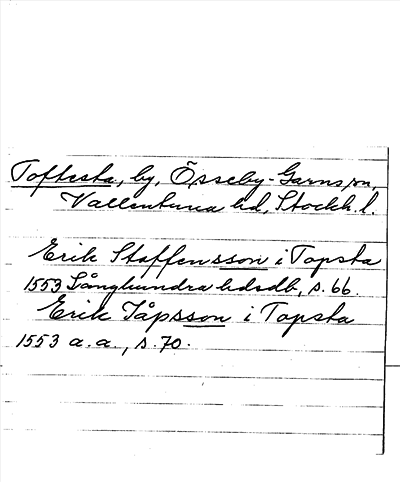 Toftesta, by, Össeby-Garns sn,
Vallentuna hd, Stockh. l.
Erik Staffensson i Topsta
1553 Långhundra hdsdb, s. 66.
Erik Jåpsson i Topsta
1553 a. a., s. 70.